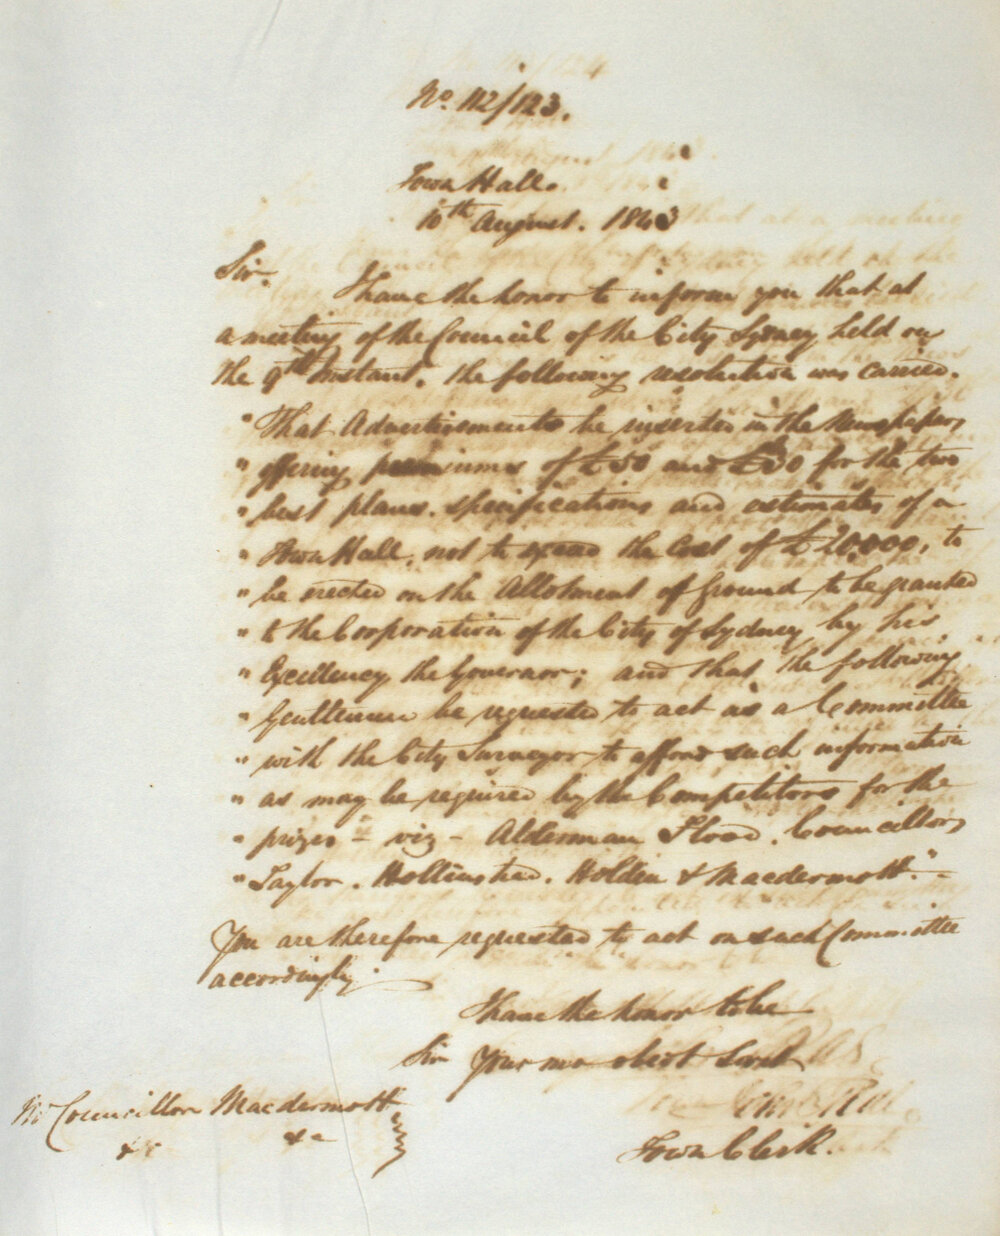 No. 112/123.
Town Hall.
10th August. 1843
Sir.
I have the honor to inform you that at
a meeting of the Council of the City Sydney held on
the 9th Instant. the following resolution was carried.
"That Advertisements be inserted in the Newspapers
" offering premiums of £50 and £30 for the two
" best plans. specifications and estimates of a
" Town Hall, not to exceed the Cost of £20,000, to
" be erected on the Allotment of ground to be granted
" to the Corporation of the City of Sydney by his
" Excellency the Governor; and that the following
" Gentlemen be requested to act as a Committee
" with the City Surveyor to afford such information
" as may be required by the Competitors for the
" prizes - viz - Alderman Flood. Councillors
" Taylor. Hollinshed. Holden & Macdermott." -
You are therefore requested to act on such Committee
accordingly.
I have the honor to be
Sir Your mo obedt Servt
Town Clerk.
Mr Councillor Macdermott
&c &c